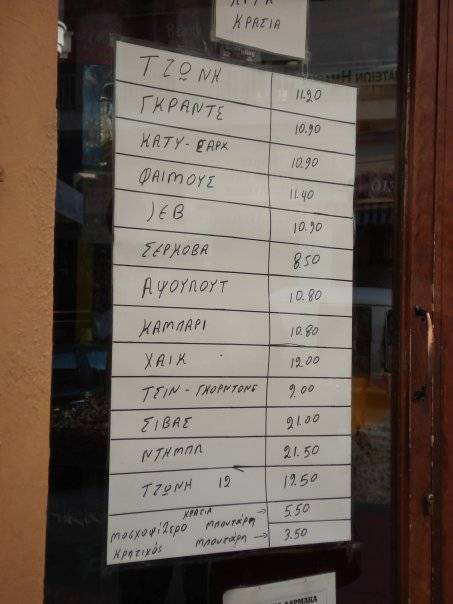 ΚΡΑΣΙΑ
ΤΖΩΝΗ 11.20
ΓΚΡΑΝΤΣ 10.90
ΚΑΤΥ-ΣΑΡΚ 10.90
ΦΑΙΜΟΥΣ 11.40
JEB 10.90
ΣΕΡΚΟΒΑ 8.50
ΑΨΟΥΛΟΥΤ 10.80
ΚΑΜΠΑΡΙ 10.80
ΧΑΙΚ 12.00
ΤΣΙΝ-ΓΚΟΡΝΤΟΝΣ 9.00
ΣΙΒΑΣ 21.00
ΝΤΗΜΠΛ 21.50
ΤΖΩΝΗ 12 19.50
ΚΡΑΣΙΑ
Μοσχοφίλερο Μπουτάρη → 5.50
Κρητικός Μπουτάρη → 3.50